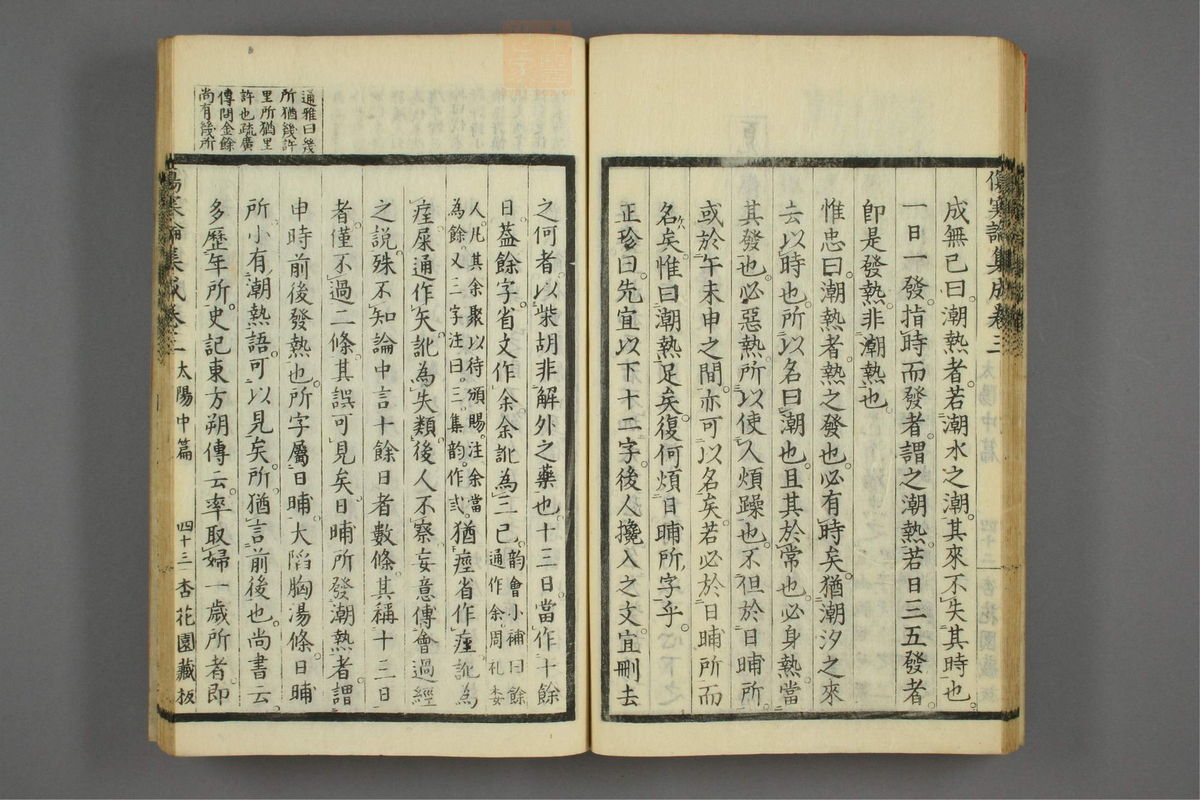 傷寒論集成卷三
成無己曰潮熱者若潮水之潮其來不失其時也
一日一發指時而發者謂之潮熱若日三五發者
卽是發熱非潮熱也
惟忠曰潮熱者熱之發也必有時矣猶潮汐之來
去以時也所以名曰潮也且其於常也必身熱當
其發也必惡熱所以使人煩躁也不但於日晡所
或於午未申之間亦可以名矣若必於日晡所而
名矣惟曰潮熱足矣復何煩日晡所字乎
正珍曰先宜以下十二字後人攙入之文宜刪去
之何者以柴胡非解外之藥也十三日當作十餘
日蓋餘字省文作余余訛為三已韵會小補曰餘
通作余周礼委
人凡其余聚以待頒賜注余當
為餘又三字注曰三集韵作弎猶痙省作痓訛為
痓屎通作矢訛為失類後人不察妄意傳會過經
之說殊不知論中言十餘日者數條其稱十三日
者僅不過二條其誤可見矣日晡所發潮熱者謂
申時前後發熱也所字屬日晡大陷胸湯條日晡
所小有潮熱語可以見矣所猶言前後也尚書云
多歷年所史記東方朔傳云率取婦一歲所者卽
通雅曰幾
所猶幾許
里所猶里
許也疏廣
傳問金餘
尚有幾所
傷寒論集成卷三 太陽中篇 四十三 杏花園藏板